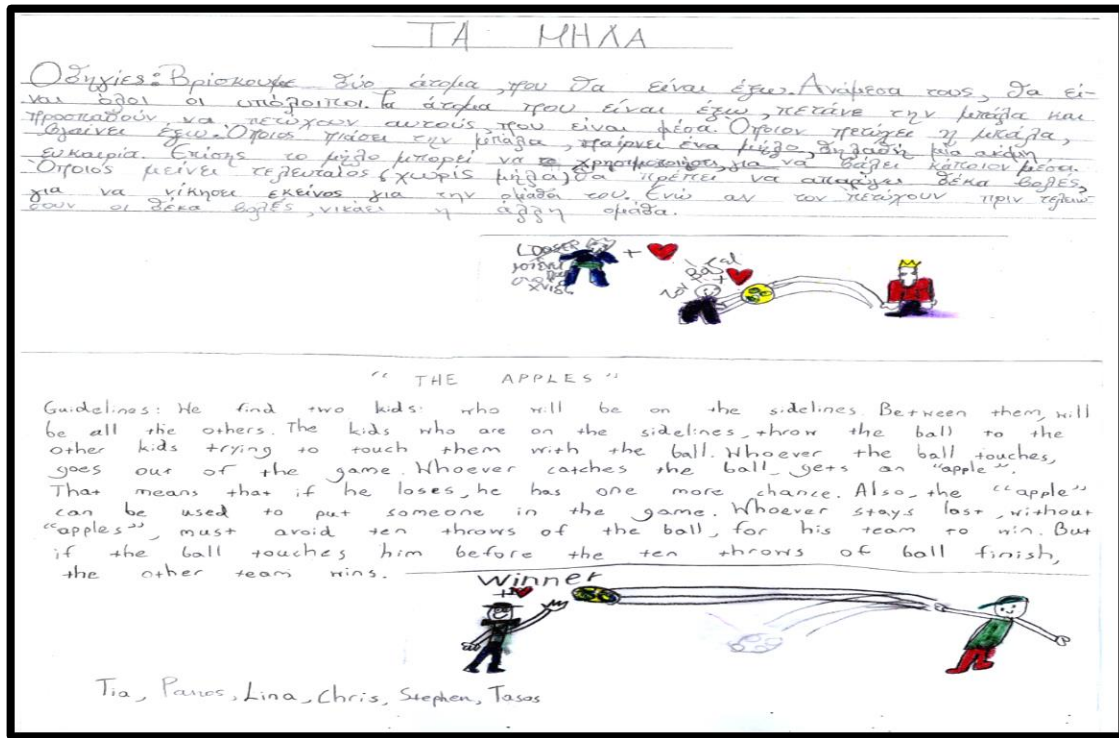 ΤΑ ΜΗΛΑ
Οδηγίες: Βρίσκουμε δύο άτομα, που θα είναι έξω. Ανάμεσα τους, θα εί-
ναι όλοι οι υπόλοιποι. Τα άτομα που είναι έξω, πετάνε την μπάλα και
προσπαθούν να πετύχουν αυτούς που είναι μέσα. Όποιον πετύχει η μπάλα,
βγαίνει έξω. Όποιος πιάσει την μπάλα, παίρνει ένα μήλο, δηλαδή μία ακόμη
ευκαιρία. Επίσης το μήλο μπορεί να χρησιμοποιηθεί για να βάλει κάποιον μέσα.
Όποιος μείνει τελευταίος (χωρίς μήλα) θα πρέπει να αποφύγει δέκα βολές,
για να νικήσει εκείνος για την ομάδα του. Ενώ αν τον πετύχουν πριν τελειώ-
σουν οι δέκα βολές, νικάει η άλλη ομάδα.
+
+
"THE APPLES"
Guidelines: We find two kids: who will be on the sidelines. Between them, will
be all the others. The kids who are on the sidelines, throw the ball to the
other kids trying to touch them with the ball. Whoever the ball touches,
goes out of the game. Whoever catches the ball, gets an "apple".
That means that if he loses, he has one more chance. Also, the "apple"
can be used to put someone in the game. Whoever stays last, without
"apples", must avoid ten throws of the ball, for his team to win. But
if the ball touches him before the ten throws of ball finish,
the other team wins.
Winner
+
Tia, Panos, Lina, Chris, Stephen, Tasos